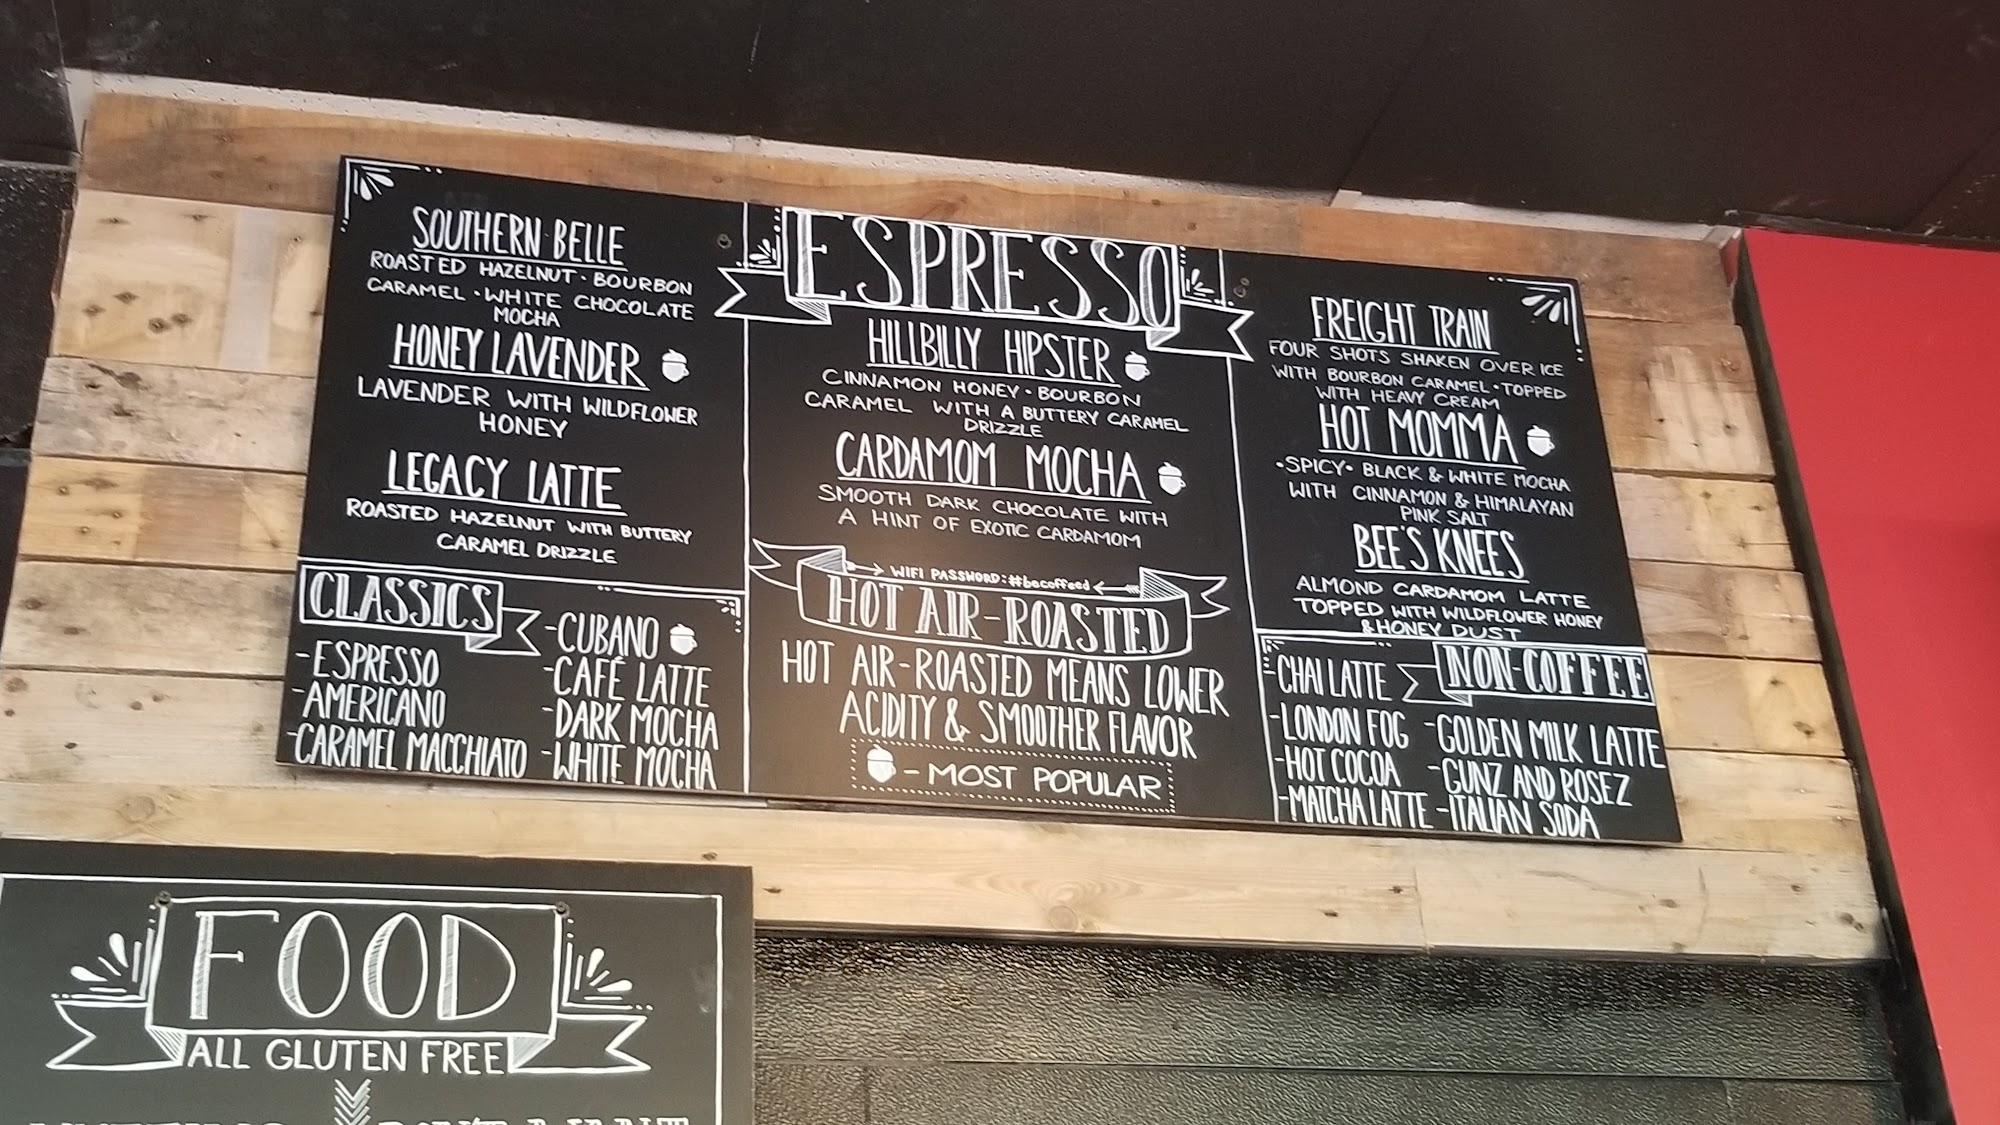 SOUTHERN BELLE
ROASTED HAZELNUT · BOURBON
CARAMEL · WHITE CHOCOLATE
MOCHA
HONEY LAVENDER
LAVENDER WITH WILDFLOWER
HONEY
LEGACY LATTE
ROASTED HAZELNUT WITH BUTTERY
CARAMEL DRIZZLE
CLASSICS
-ESPRESSO
-AMERICANO
-CARAMEL MACCHIATO
-CUBANO
-CAFÉ LATTE
-DARK MOCHA
-WHITE MOCHA
ESPRESSO
HILLBILLY HIPSTER
CINNAMON HONEY · BOURBON
CARAMEL WITH A BUTTERY CARAMEL
DRIZZLE
CARDAMOM MOCHA
SMOOTH DARK CHOCOLATE WITH
A HINT OF EXOTIC CARDAMOM
WIFI PASSWORD: #becoffeed
HOT AIR-ROASTED
HOT AIR-ROASTED MEANS LOWER
ACIDITY & SMOOTHER FLAVOR
- MOST POPULAR
FREIGHT TRAIN
FOUR SHOTS SHAKEN OVER ICE
WITH BOURBON CARAMEL · TOPPED
WITH HEAVY CREAM
HOT MOMMA
·SPICY· BLACK & WHITE MOCHA
WITH CINNAMON & HIMALAYAN
PINK SALT
BEE'S KNEES
ALMOND CARDAMOM LATTE
TOPPED WITH WILDFLOWER HONEY
& HONEY DUST
NON-COFFEE
-CHAI LATTE
-LONDON FOG
-HOT COCOA
-MATCHA LATTE
-GOLDEN MILK LATTE
-GUNZ AND ROSEZ
-ITALIAN SODA
FOOD
ALL GLUTEN FREE